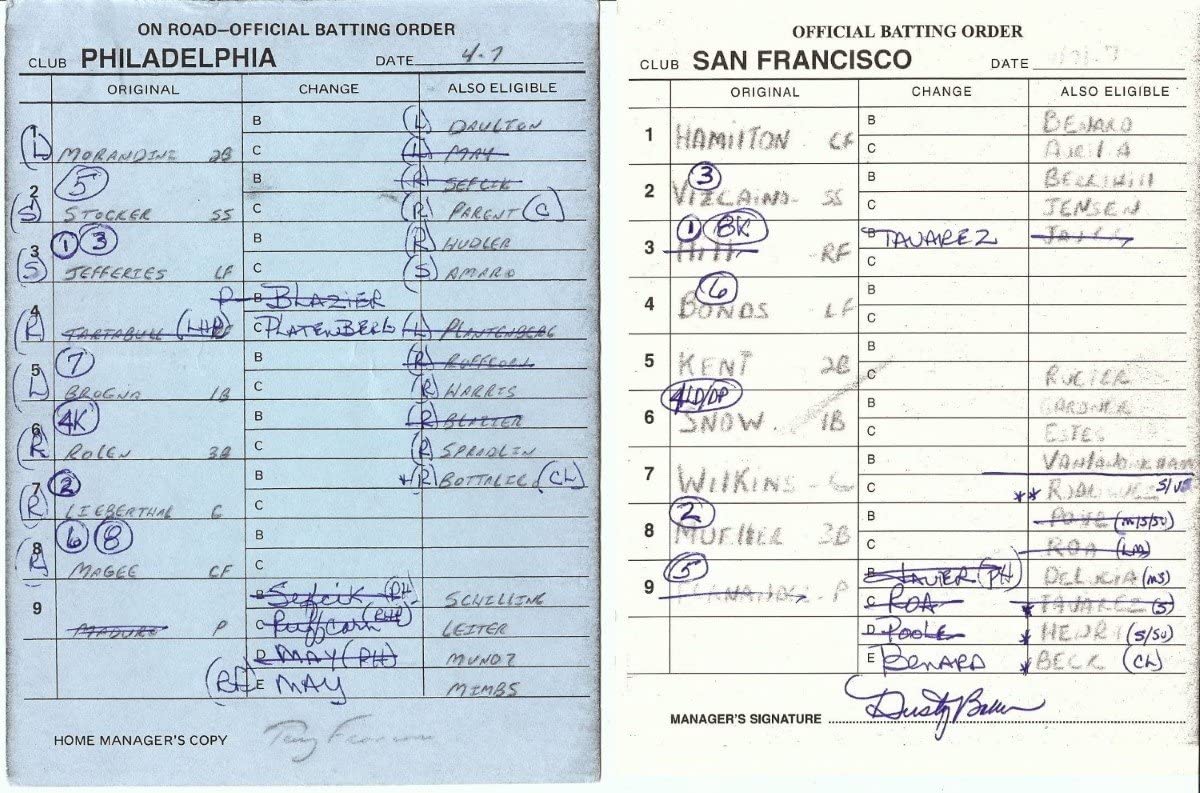 ON ROAD—OFFICIAL BATTING ORDER
CLUB PHILADELPHIA DATE 4-7
ORIGINAL CHANGE ALSO ELIGIBLE
B (L) DAULTON
1 (L) MORANDINI 2B C (L) MAY
5 B (R) SEFCIK
2 (S) STOCKER SS C (R) PARENT (C)
1 3 B (R) HUDLER
3 (S) JEFFERIES LF C (S) AMARO
P B BLAZIER
4 (R) TARTABULL (LHP) RF C PLATENBERG (L) PLANTENBERG
7 B (R) RUFFCORN
5 (L) BROGNA 1B C (R) HARRIS
4K B (R) BLAZIER
6 (R) ROLEN 3B C (R) SPRADLIN
2 B *(R) BOTTALICO (CL)
7 (R) LIEBERTHAL C C
6 8 B
8 (R) MAGEE CF C
B Sefcik (PH) SCHILLING
9 MADURO P C Ruffcorn (RHP) LEITER
D MAY (PH) MUNOZ
E MAY MIMBS
HOME MANAGER'S COPY
OFFICIAL BATTING ORDER
CLUB SAN FRANCISCO DATE
ORIGINAL CHANGE ALSO ELIGIBLE
B BENARD
1 HAMILTON CF C AURILIA
3 B BERRYHILL
2 VIZCAINO SS C JENSEN
1 8K B TAVAREZ JAVIER
3 HILL RF C
6 B
4 BONDS LF C
B
5 KENT 2B C RUETER
4 LD/DP B GARDNER
6 SNOW 1B C ESTES
B VANLANDINGHAM
7 WILKINS C C ** RODRIGUEZ
2 B POOLE (M/S/SU)
8 MUELLER 3B C ROA (LM)
5 B JAVIER (PH) DELUCIA (MS)
9 FERNANDEZ P C ROA * TAVAREZ (S)
D Poole * HENRY (S/SU)
E BENARD * BECK (CL)
MANAGER'S SIGNATURE Dusty Baker